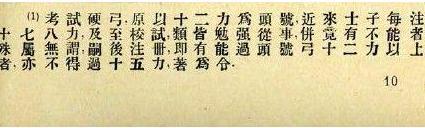 (1) 考試硬弓原以十二力為頭號近來士子每注
十七八力及至校試類皆勉強從事併竟有不能者
殊屬無謂嗣後注冊即有能過頭號弓十二力以上
者,亦不得過十五力,著為合.
10